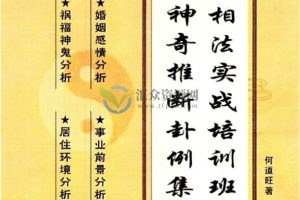 相法实战培训班
神奇推断卦例集
何道旺著
★婚姻感情分析
★事业前景分析
★祸福神鬼分析
★居住环境分析
汇众资源网